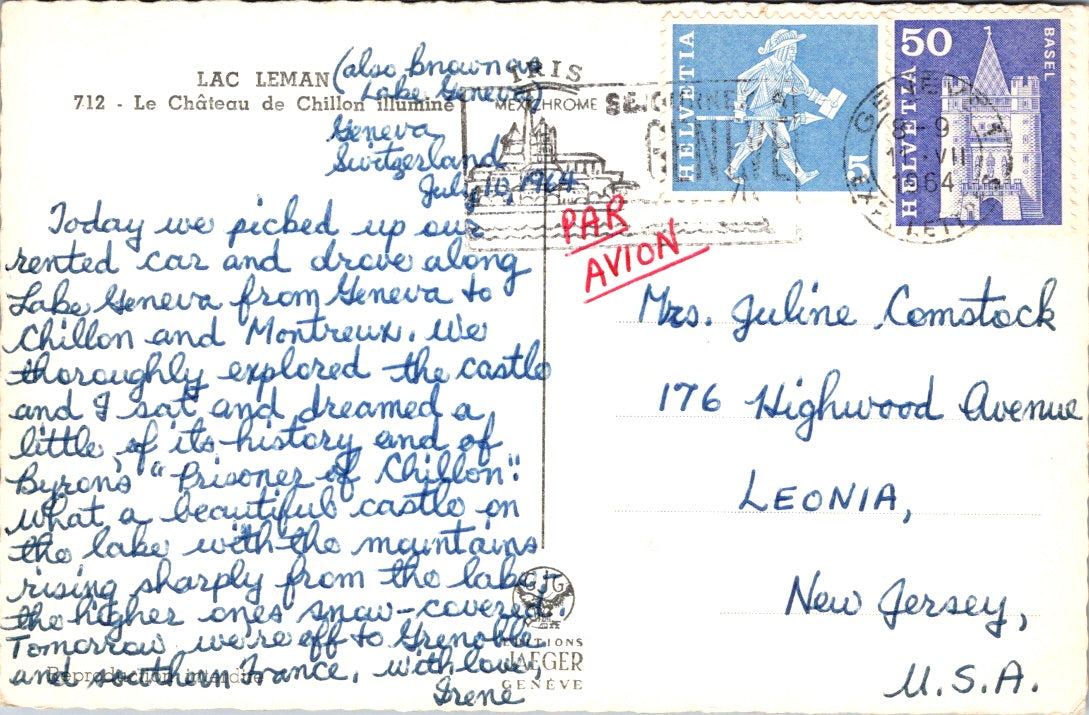 LAC LEMAN
712 - Le Château de Chillon illuminé
(also known as
Lake Geneva)
IRIS
MEXICHROME
Geneva,
Switzerland
July 10, 1964
Today we picked up our
rented car and drove along
Lake Geneva from Geneva to
Chillon and Montreux. We
thoroughly explored the castle
and I sat and dreamed a
little of its history and of
Byron's "Prisoner of Chillon".
What a beautiful castle on
the lake with the mountains
rising sharply from the lake,
the higher ones snow-covered.
Tomorrow we're off to Grenoble
and southern France. With love,
Irene
Reproduction interdite
EDITIONS
JAEGER
GENÈVE
SÉJOURNEZ A
GENÈVE
HELVETIA
5
50
HELVETIA
BASEL
GENÈVE
8-9
11.VII
1964
EXP. LETTRES
PAR
AVION
Mrs. Juline Comstock
176 Highwood Avenue
LEONIA,
New Jersey,
U.S.A.